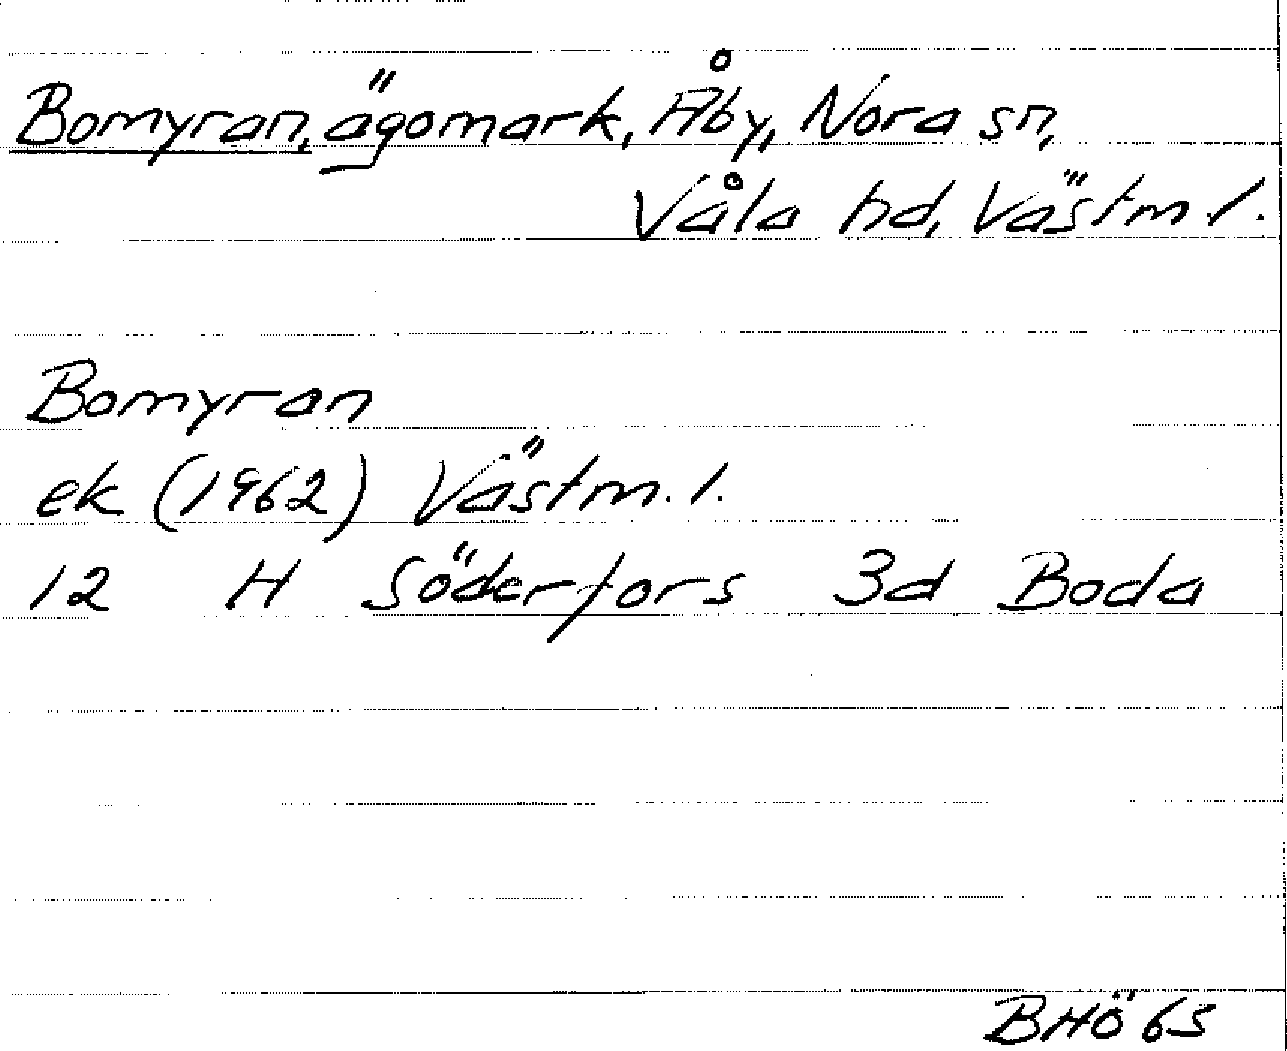 Bomyran, ägomark, Åby, Nora sn,
Våla hd, Västm l.
Bomyran
ek (1962) Västm. l.
12 H Söderfors 3d Boda
BHÖ 65